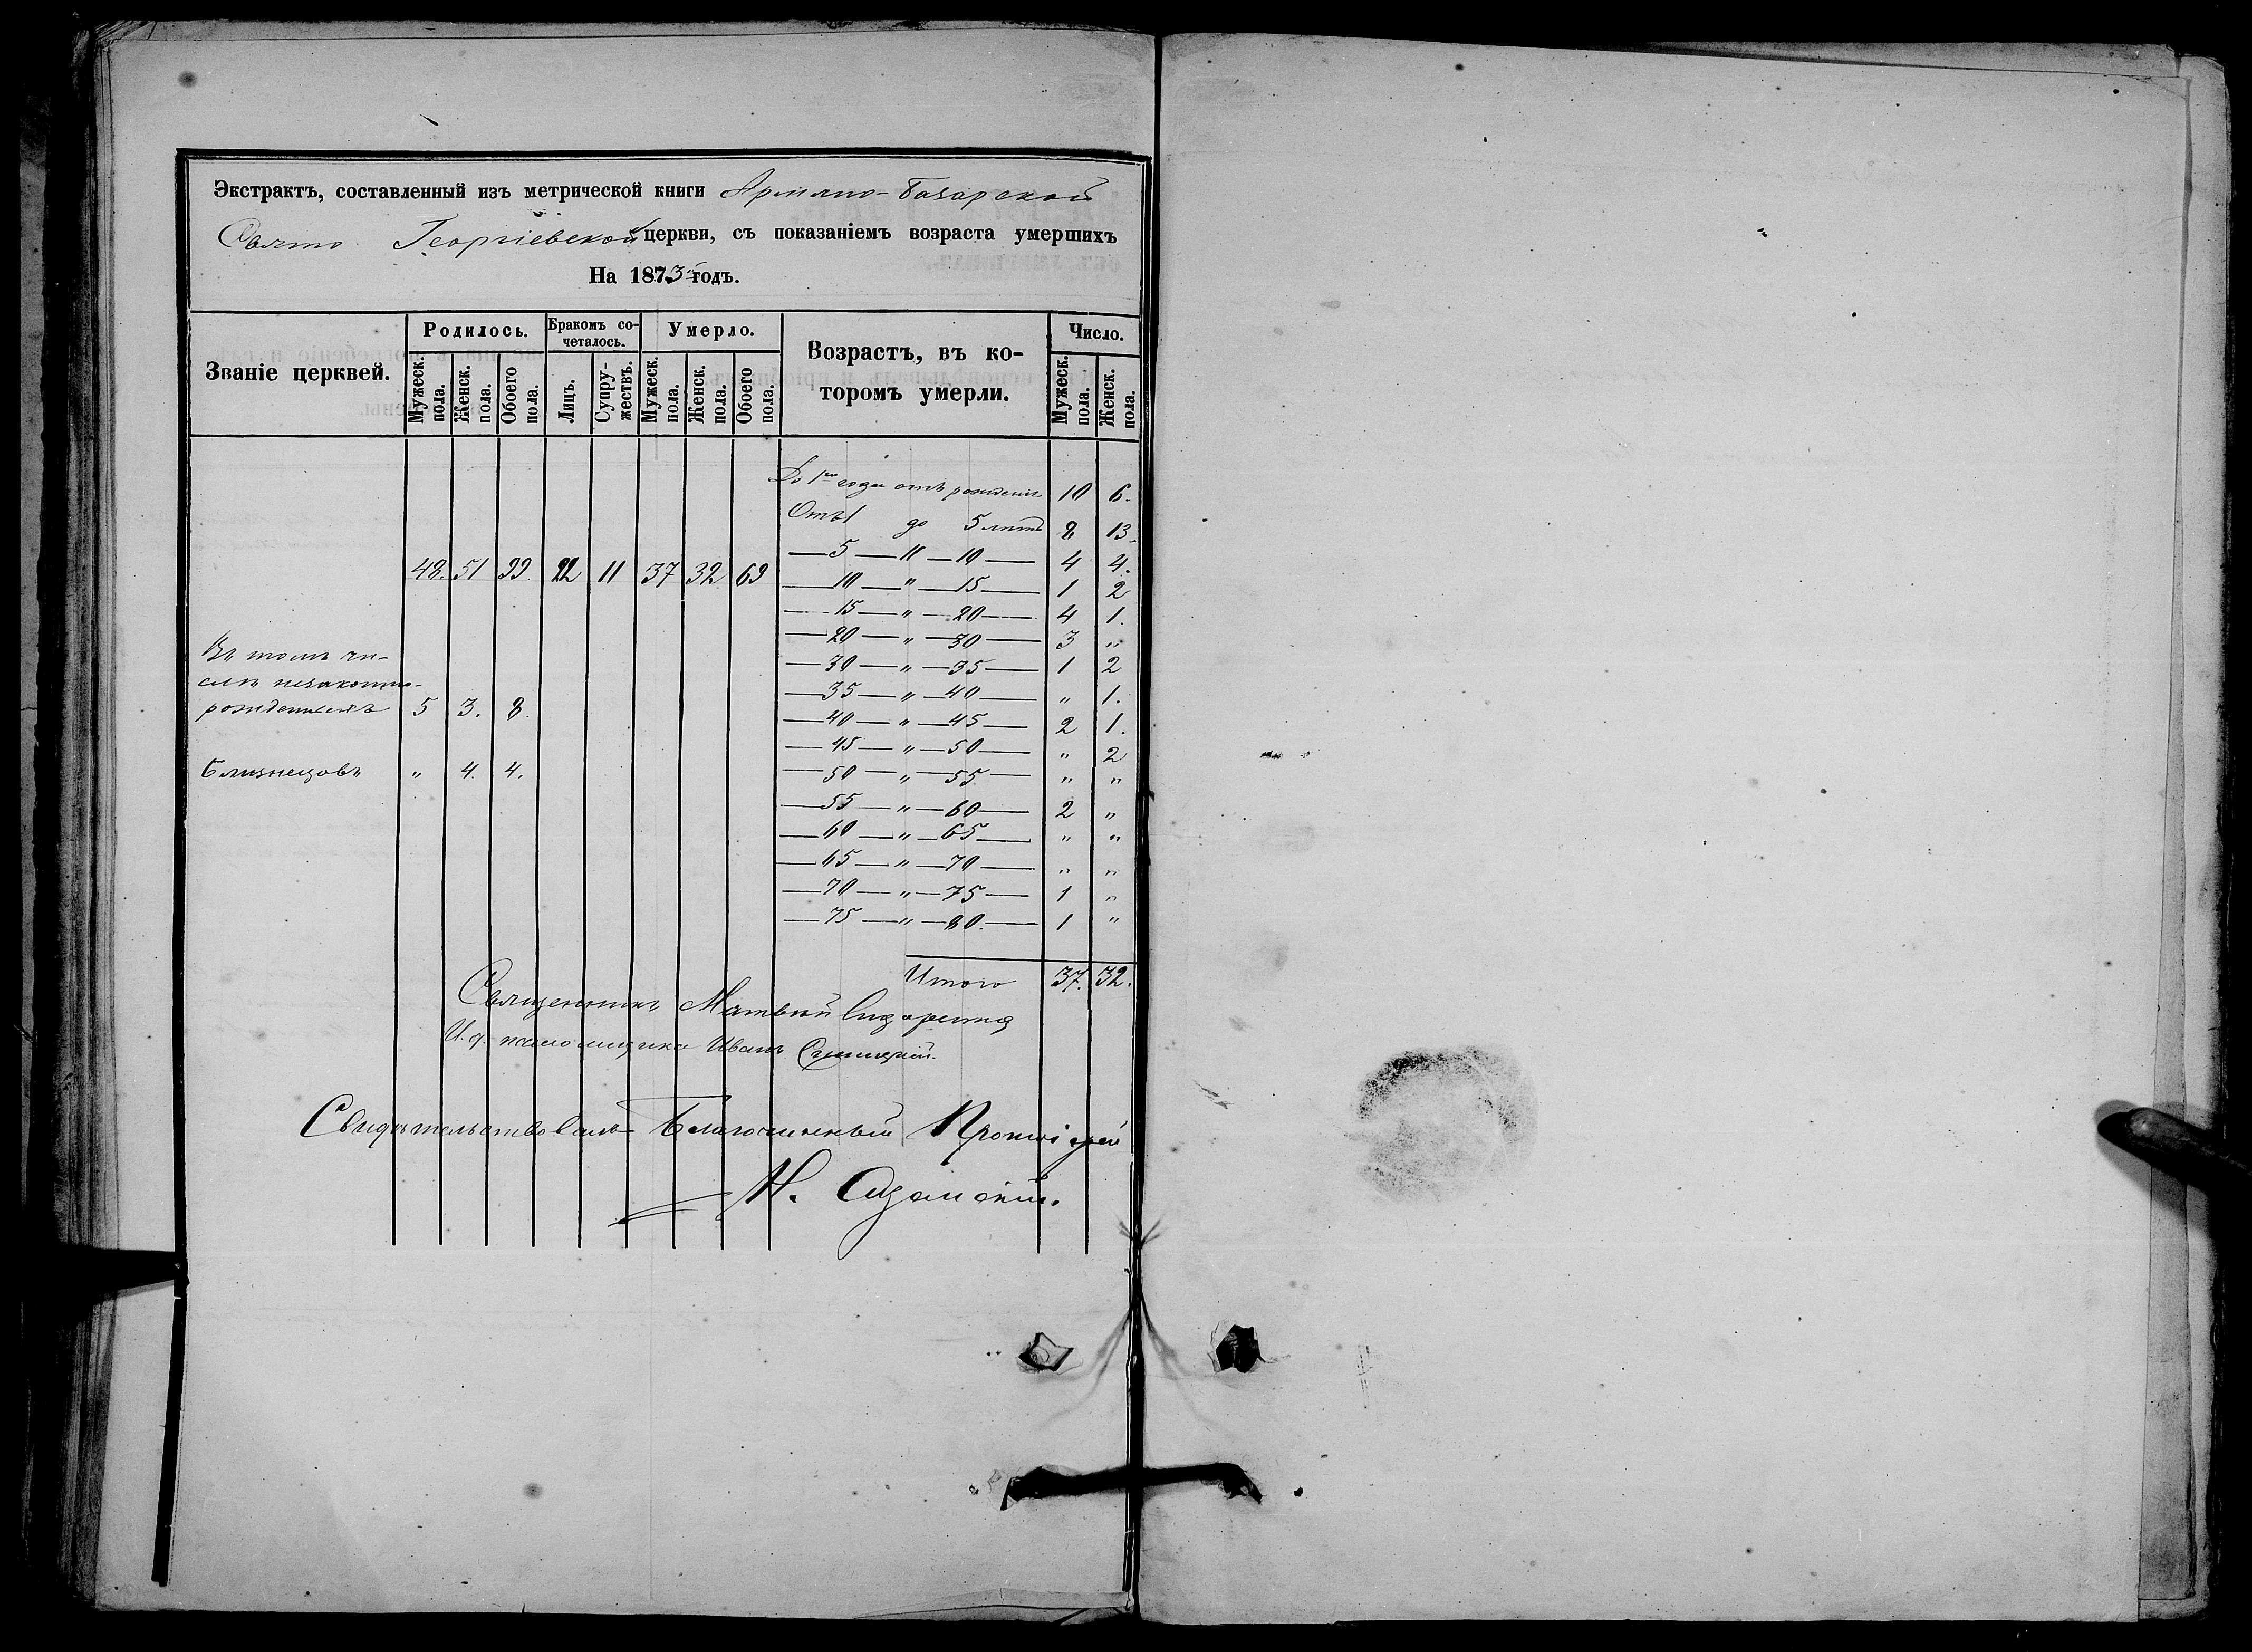 Экстрактъ, составленный изъ метрической книги Армяно-Базарской
Свято Георгіевской церкви, съ показаніемъ возраста умершихъ
На 1873 годъ.
Званіе церквей. Родилось. Бракомъ со-четалось. Умерло. Возрастъ, въ ко-торомъ умерли. Число.
Мужеск. пола. Женск. пола. Обоего пола. Лицъ. Супру-жествъ. Мужеск. пола. Женск. пола. Обоего пола. Мужеск. пола. Женск. пола.
До 1го года отъ рожденія 10 6.
Отъ 1 до 5 лѣтъ 8 13.
— 5 — " — 10 — 4 4.
48. 51 99. 22 11 37 32 69
— 10 — " — 15 — 1 2
— 15 — " — 20 — 4 1.
— 20 — " — 30 — 3 "
— 30 — " — 35 — 1 2
— 35 — " — 40 — " 1.
— 40 — " — 45 — 2 1.
— 45 — " — 50 — " 2
— 50 — " — 55 — " "
— 55 — " — 60 — 2 "
— 60 — " — 65 — " "
— 65 — " — 70 — " "
— 70 — " — 75 — 1 "
— 75 — " — 80. — 1 "
Въ томъ чи-
слѣ незаконно-
рожденныхъ 5 3. 8.
Близнецовъ " 4. 4.
Итого 37. 32.
Священникъ Матвѣй
И. д. псаломщика Иванъ
Свидѣтельствовалъ Благочинный Протоіерей